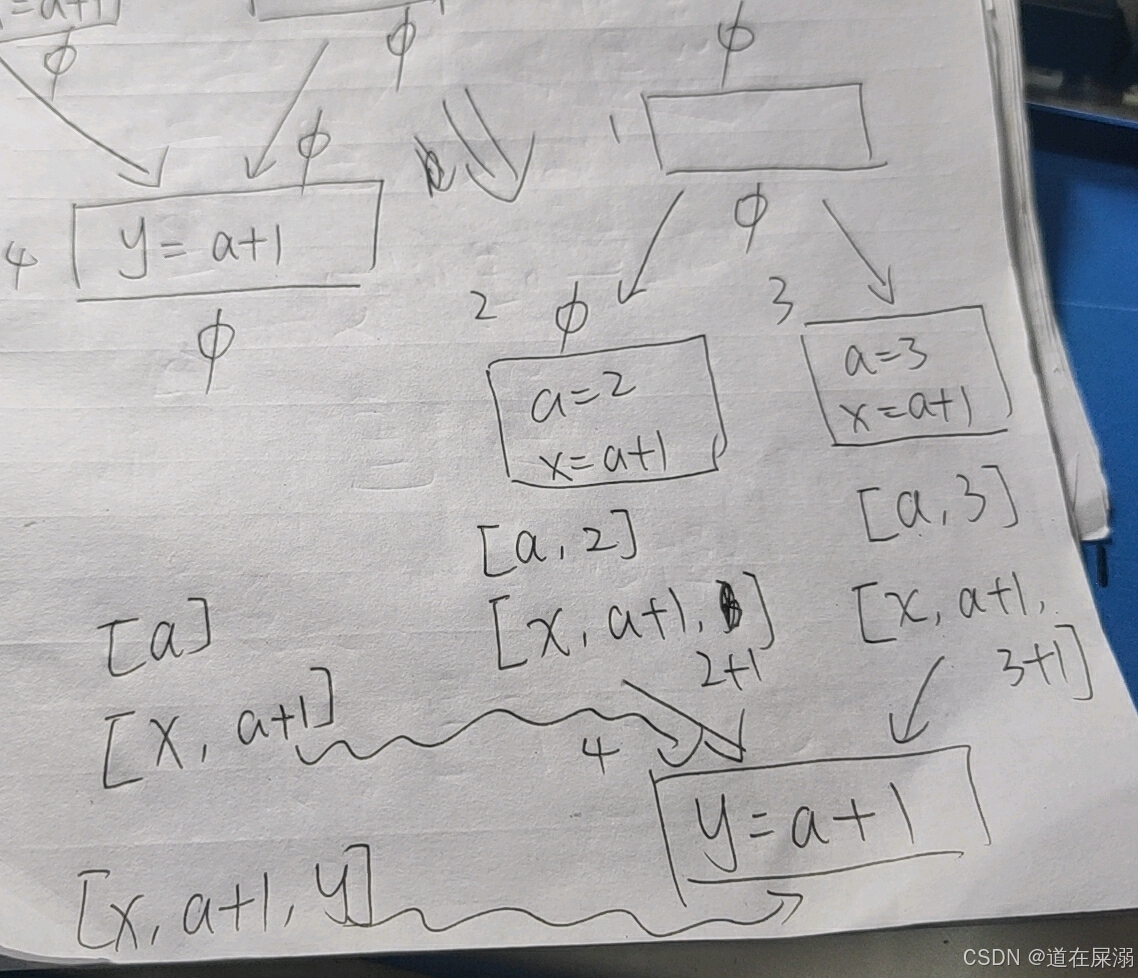 =a+1
ϕ
ϕ
ϕ
4
y=a+1
ϕ
ϕ
1
ϕ
2
ϕ
a=2
x=a+1
[a,2]
[x,a+1,
2+1]
3
a=3
x=a+1
[a,3]
[x,a+1,
3+1]
[a]
[x,a+1]
4
y=a+1
[x,a+1,y]
CSDN @道在屎溺